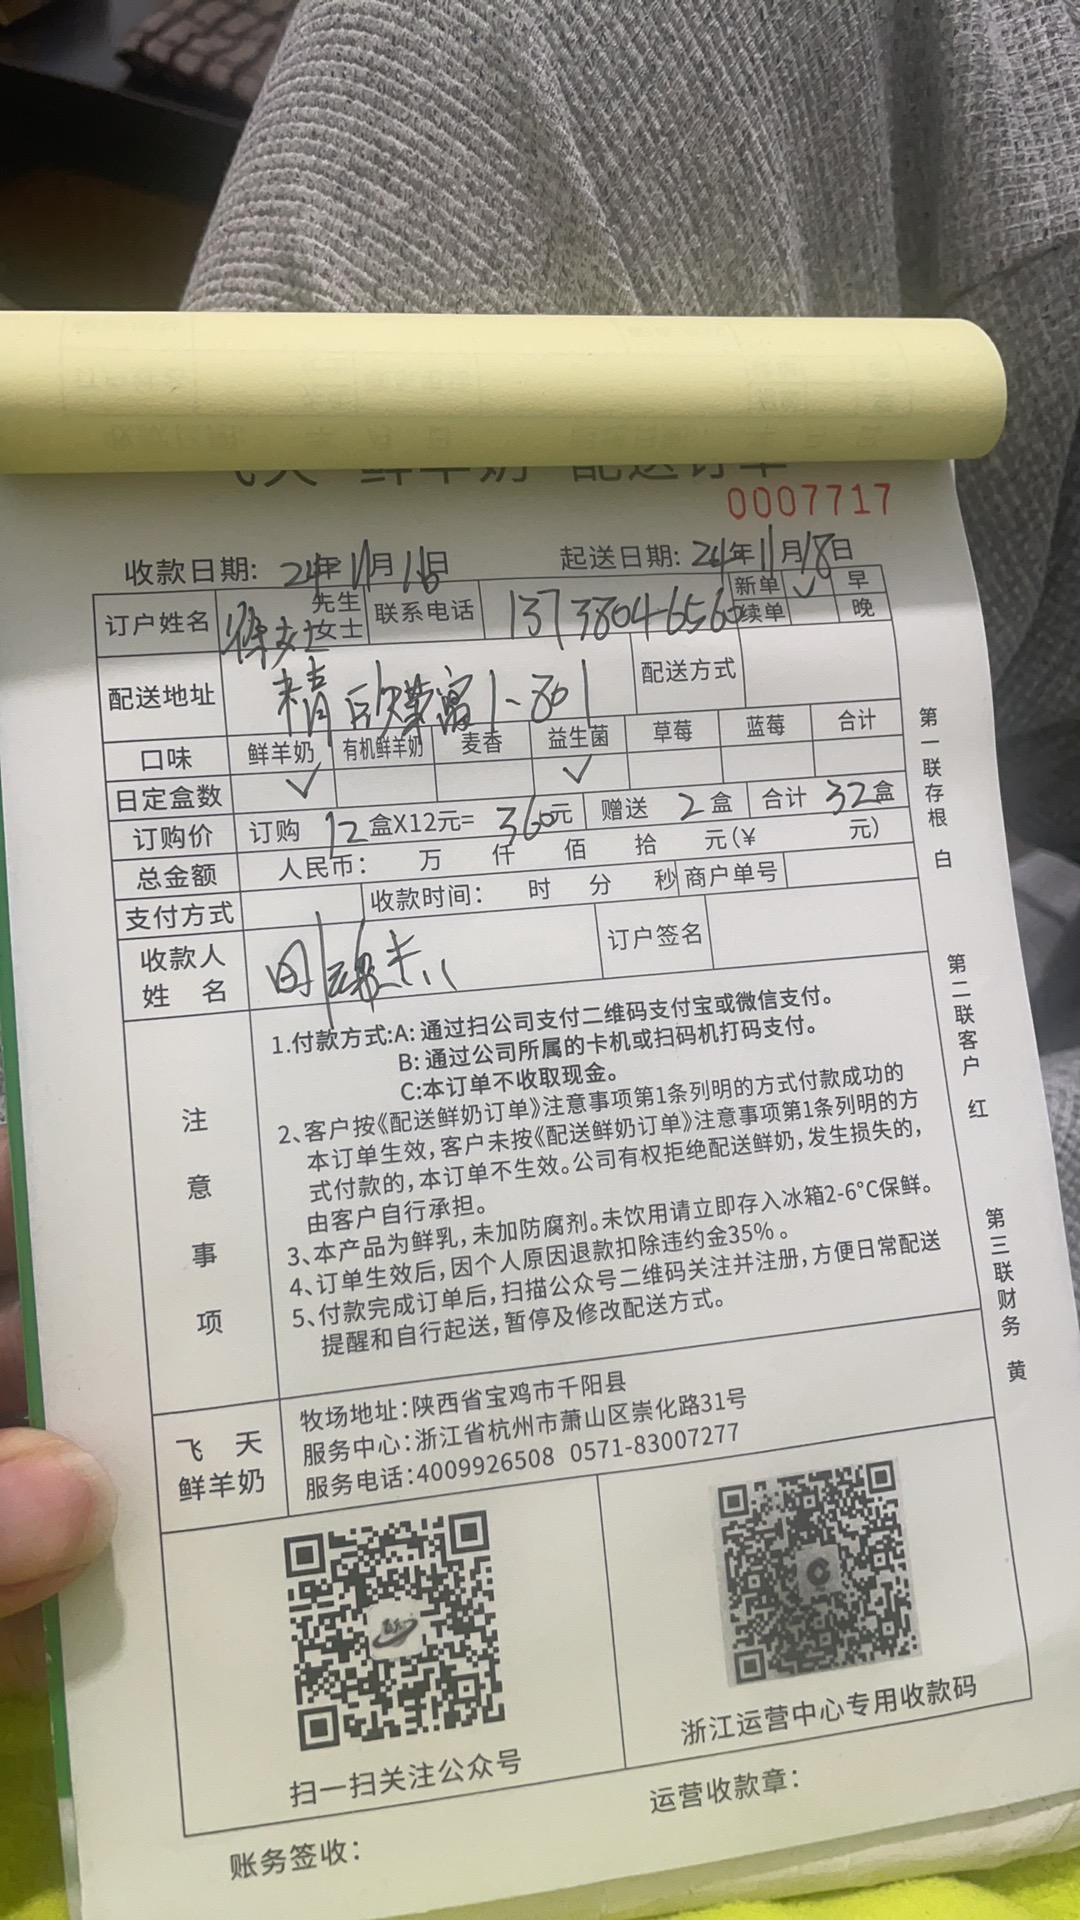 飞天 鲜羊奶 配送订单
0007717
收款日期: 24年11月16日 起送日期: 24年11月18日
订户姓名 徐女士 先生 女士 联系电话 13738046560 新单 ✓ 早
续单 晚
配送地址 精欣 1-801 配送方式
口味 鲜羊奶 有机鲜羊奶 麦香 益生菌 草莓 蓝莓 合计
日定盒数 ✓ ✓
订购价 订购 12 盒X12元= 360元 赠送 2 盒 合计 32 盒
总金额 人民币: 万 仟 佰 拾 元(¥ 元)
支付方式 收款时间: 时 分 秒 商户单号
收款人
姓 名
订户签名
注意事项
1.付款方式:A: 通过扫公司支付二维码支付宝或微信支付。
B: 通过公司所属的卡机或扫码机打码支付。
C:本订单不收取现金。
2、客户按《配送鲜奶订单》注意事项第1条列明的方式付款成功的
本订单生效,客户未按《配送鲜奶订单》注意事项第1条列明的方
式付款的,本订单不生效。公司有权拒绝配送鲜奶,发生损失的,
由客户自行承担。
3、本产品为鲜乳,未加防腐剂。未饮用请立即存入冰箱2-6°C保鲜。
4、订单生效后,因个人原因退款扣除违约金35%。
5、付款完成订单后,扫描公众号二维码关注并注册,方便日常配送
提醒和自行起送,暂停及修改配送方式。
飞 天
鲜羊奶
牧场地址:陕西省宝鸡市千阳县
服务中心:浙江省杭州市萧山区崇化路31号
服务电话:4009926508 0571-83007277
扫一扫关注公众号
浙江运营中心专用收款码
账务签收:
运营收款章:
第一联存根 白
第二联客户 红
第三联财务 黄